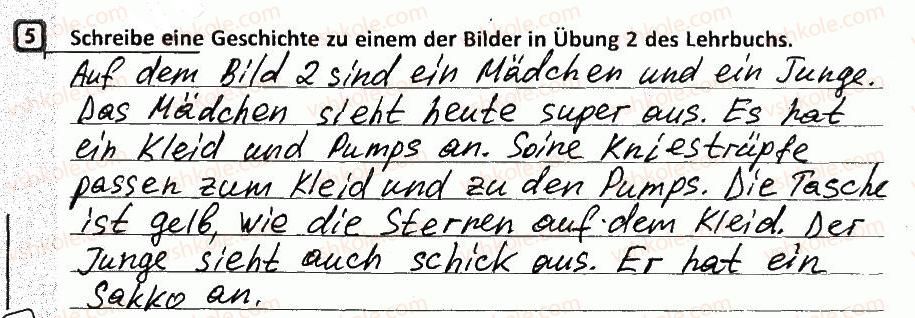 5 Schreibe eine Geschichte zu einem der Bilder in Übung 2 des Lehrbuchs.
Auf dem Bild 2 sind ein Mädchen und ein Junge.
Das Mädchen sieht heute super aus. Es hat
ein Kleid und Pumps an. Soine Kniesträpfe
passen zum Kleid und zu den Pumps. Die Tasche
ist gelb, wie die Sternen auf dem Kleid. Der
Junge sieht auch schick aus. Er hat ein
Sakko an.